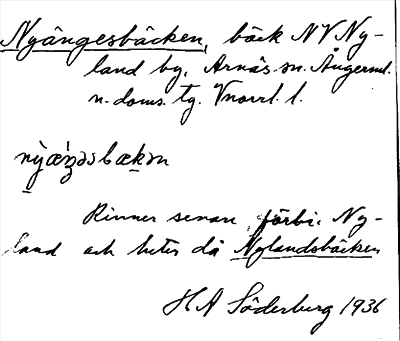 Nyängesbäcken, bäck NV Ny-
land by, Arnäs sn. Ångerml.
n. doms. tg. Vnorrl. l.
nỳæŋ́əsbækən
Rinner senare förbi Ny-
land och heter då Nylandsbäcken
H A Söderberg 1936